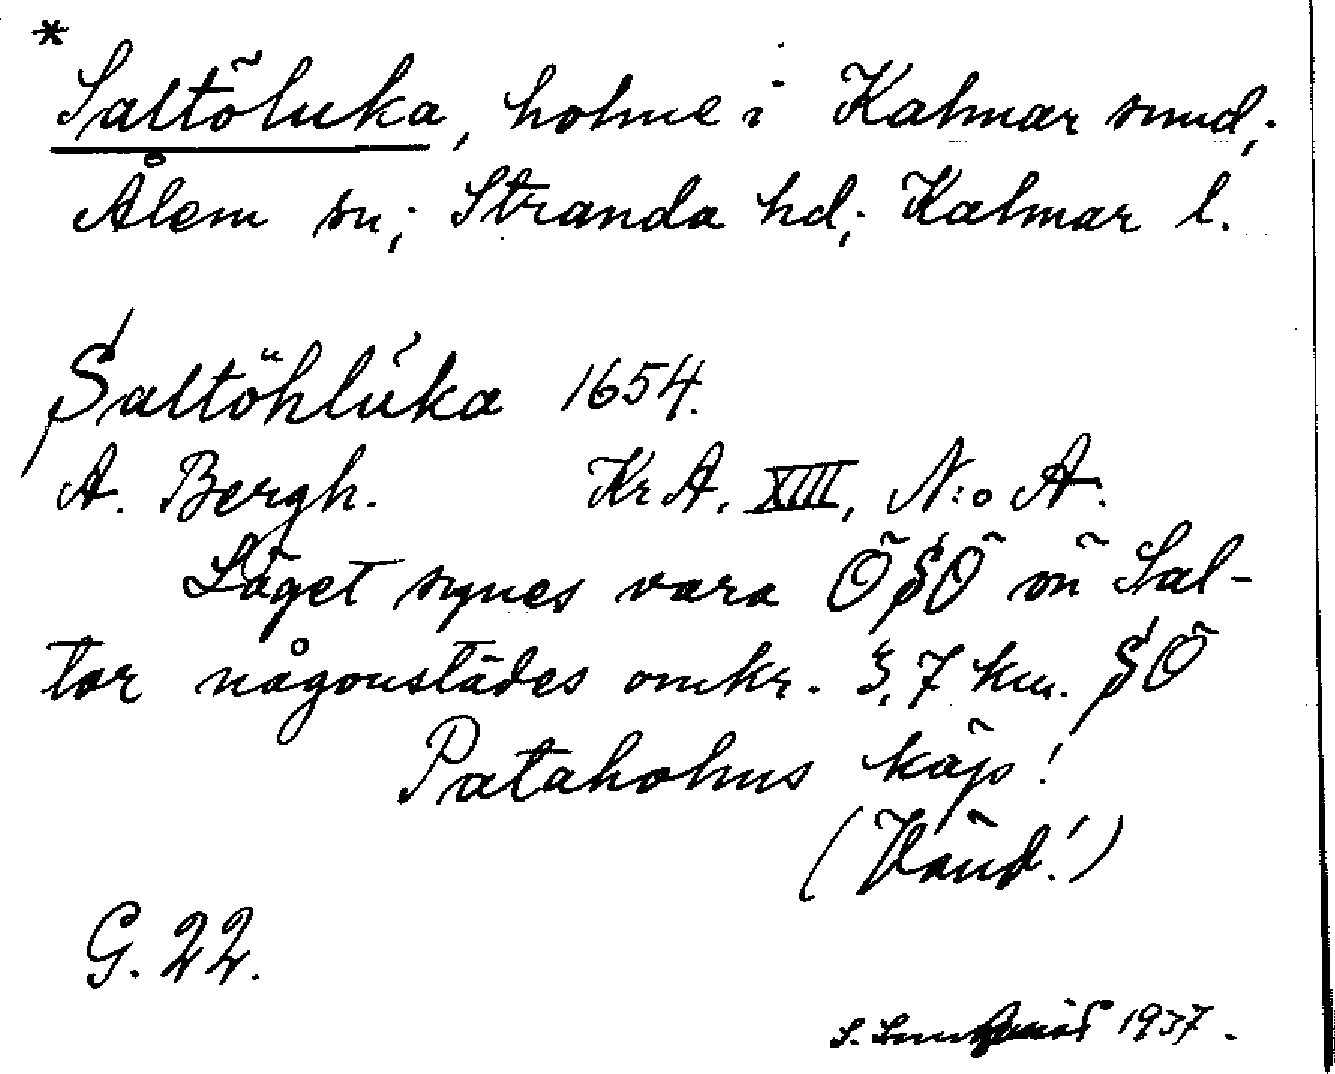 *
Saltöluka, holme i Kalmar sund;
Ålem sn; Stranda hd; Kalmar l.
Saltöhlúka 1654.
A. Bergh. Kr A. XIII, N:o A.
Läget synes vara ÖSÖ om Sal-
tor någonstädes omkr. 3,7 km. SÖ
Pataholms köp!
(Vänd!)
G. 22.
S. 1937.